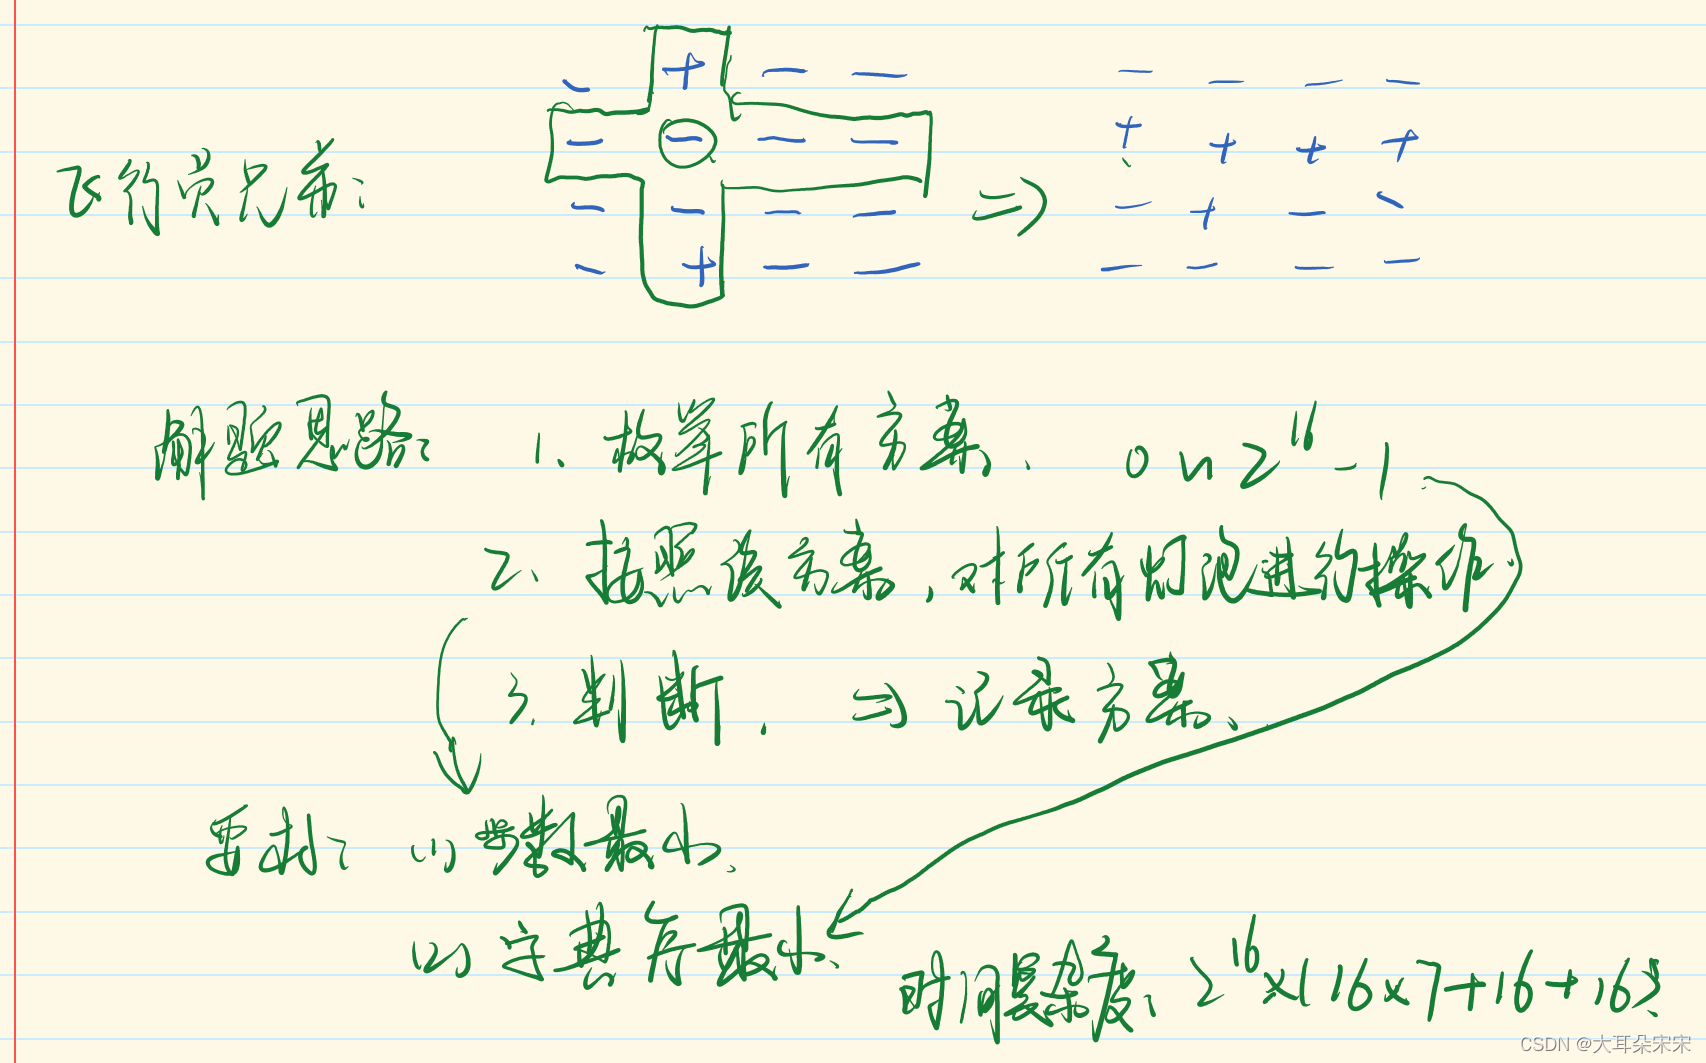 - + - - - - - -
- - - - + + + +
飞行员兄弟：
- - - - ⇒ - + - -
- + - - - - - -
解题思路： 1、枚举所有方案、 0 ~ 2^16 - 1
2、按照该方案，对所有灯泡进行操作
3、判断， ⇒ 记录方案、
要求： (1) 步数最小、
(2) 字典序最小、
时间复杂度： 2^16 × (16×7+16+16)
CSDN @大耳朵宋宋